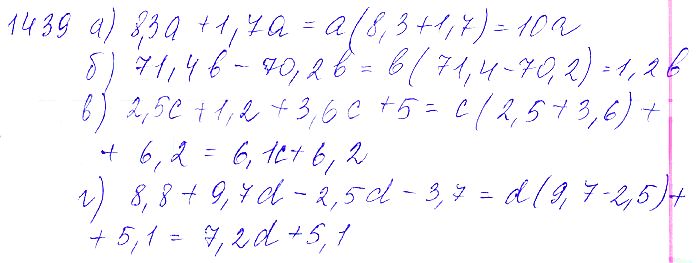 1439 а) 8,3a + 1,7a = a(8,3+1,7) = 10a
б) 71,4b - 70,2b = b(71,4-70,2) = 1,2b
в) 2,5c + 1,2 + 3,6c + 5 = c(2,5+3,6) +
+ 6,2 = 6,1c + 6,2
г) 8,8 + 9,7d - 2,5d - 3,7 = d(9,7-2,5) +
+ 5,1 = 7,2d + 5,1